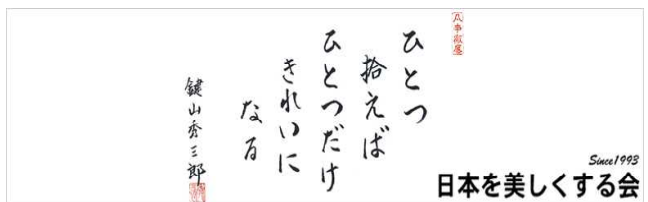 凡事徹底
ひとつ
拾えば
ひとつだけ
きれいに
なる
鍵山秀三郎
Since1993
日本を美しくする会